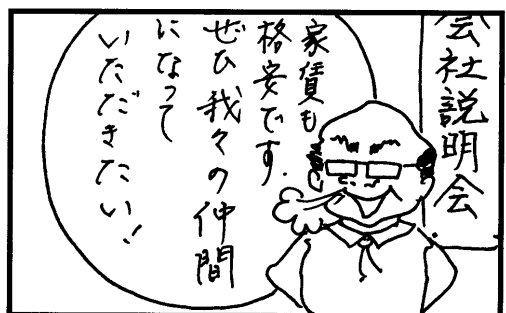 会社説明会
家賃も
格安です.
ぜひ我々の仲間
になって
いただきたい!